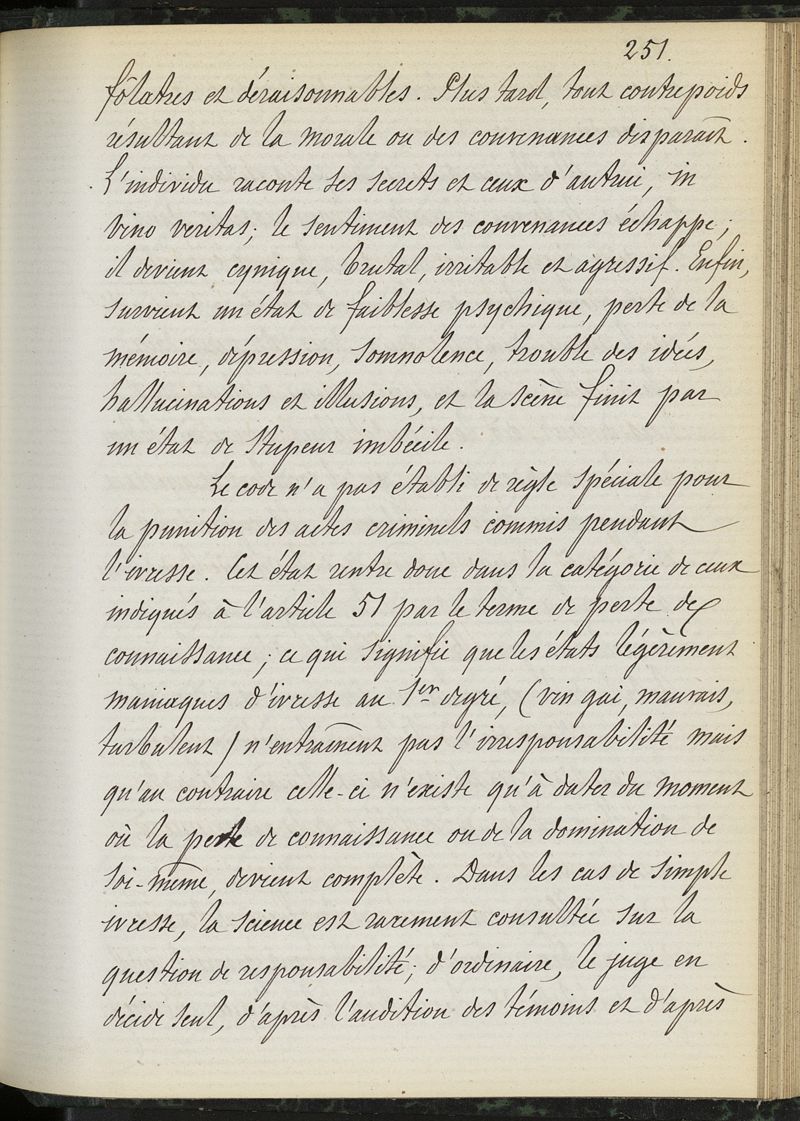 251.
fôlatres et déraisonnables. Plus tard, tout contrepoids
résultant de la morale ou des convenances disparaît.
L'individu raconte ses secrets et ceux d'autrui, in
vino veritas; le sentiment des convenances échappe;
il devient cynique, brutal, irritable et agressif. Enfin,
survient un état de faiblesse psychique, perte de la
mémoire, dépression, somnolence, trouble des idées,
hallucinations et illusions, et la scène finit par
un état de stupeur imbécile.
Le code n'a pas établi de règle spéciale pour
la punition des actes criminels commis pendant
l'ivresse. Cet état rentre donc dans la catégorie de ceux
indiqués à l'article 51 par le terme de perte de
connaissance; ce qui signifie que les états légèrement
maniaques d'ivresse au 1er degré, (vin gai, mauvais,
turbulent) n'entraînent pas l'irresponsabilité mais
qu'au contraire celle-ci n'existe qu'à dater du moment
où la perte de connaissance ou de la domination de
soi-même, devient complète. Dans les cas de simple
ivresse, la science est rarement consultée sur la
question de responsabilité; d'ordinaire, le juge en
décide seul, d'après l'audition des témoins et d'après